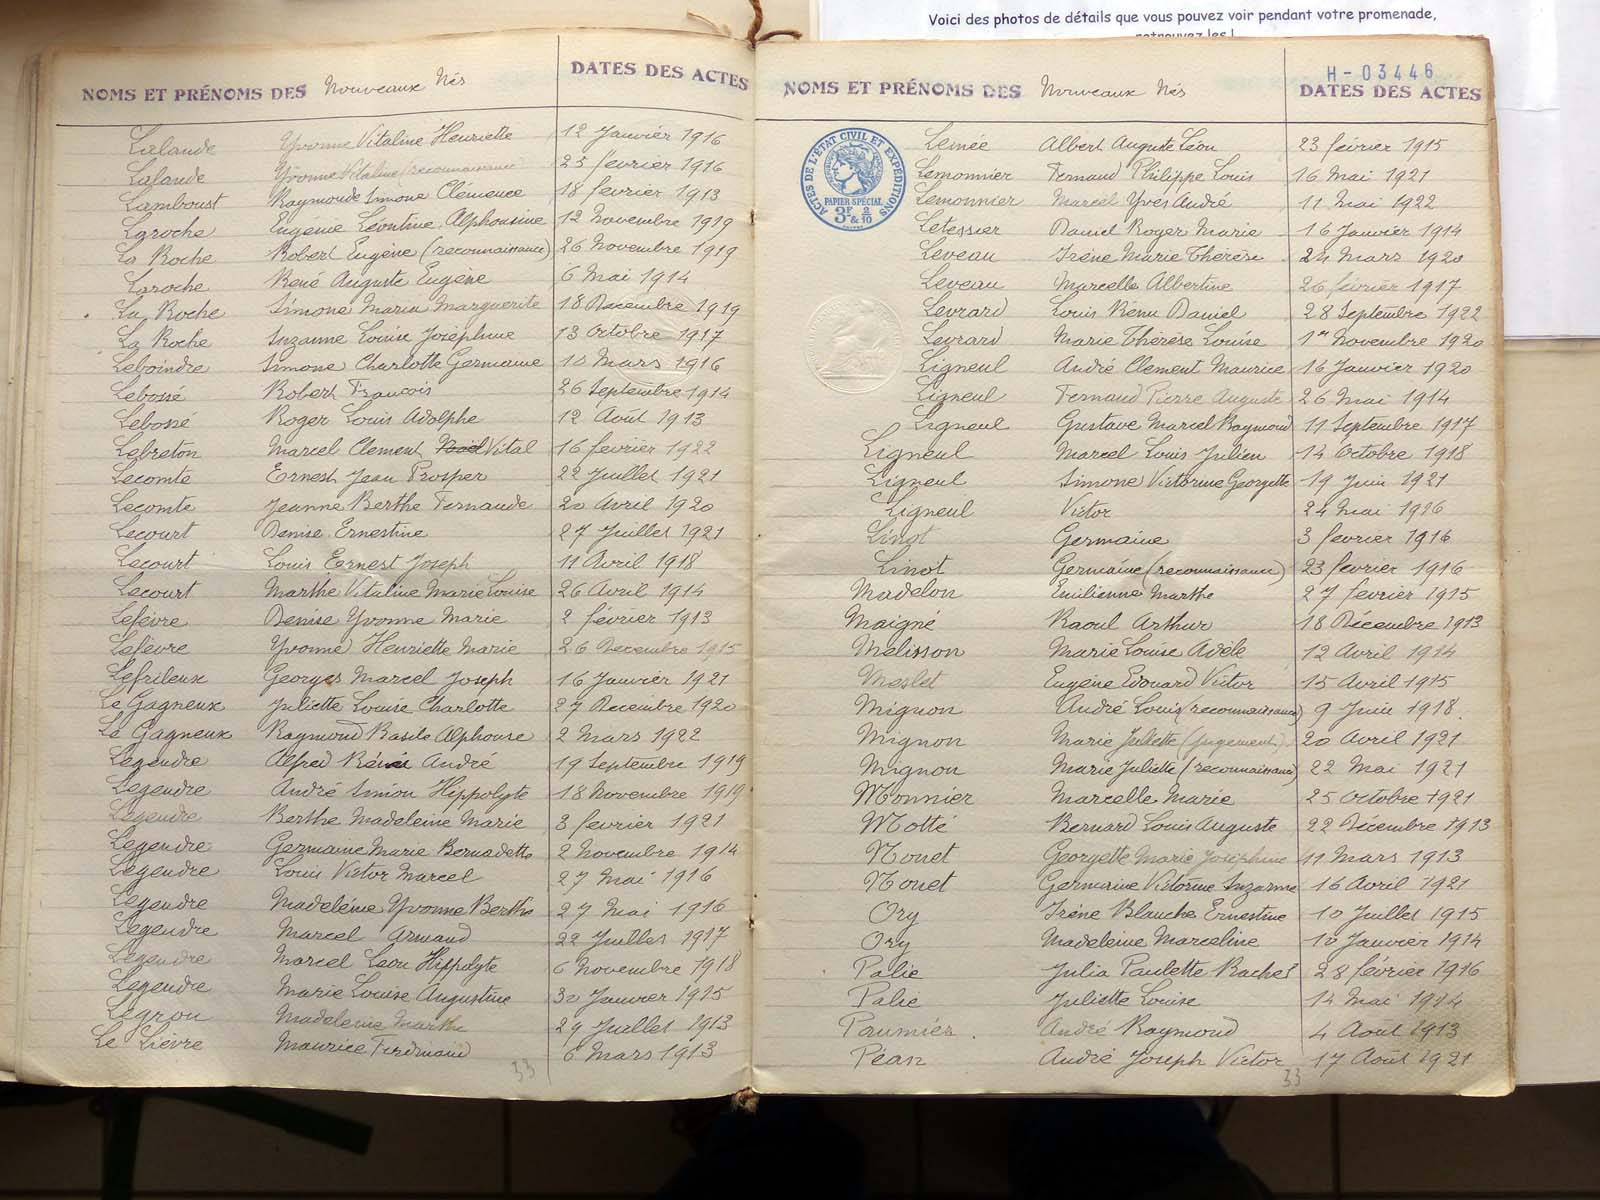 Voici des photos de détails que vous pouvez voir pendant votre promenade,
retrouvez les !
NOMS ET PRÉNOMS DES Nouveaux Nés DATES DES ACTES
Lalande Yvonne Vitaline Henriette 12 Janvier 1916
Lalande Yvonne Vitaline (reconnaissance) 25 février 1916
Lamboust Raymonde Simone Clémence 18 février 1913
Laroche Eugénie Léontine Alphonsine 12 Novembre 1919
La Roche Robert Eugène (reconnaissance) 26 Novembre 1919
Laroche René Auguste Eugène 6 Mai 1914
La Roche Simone Maria Marguerite 18 Décembre 1919
La Roche Suzanne Louise Joséphine 13 Octobre 1917
Leboindre Simone Charlotte Germaine 10 Mars 1916
Lebossé Robert François 26 Septembre 1914
Lebossé Roger Louis Adolphe 12 Août 1913
Lebreton Marcel Clement Vital 16 février 1922
Lecomte Ernest Jean Prosper 22 Juillet 1921
Lecomte Jeanne Berthe Fernande 20 Avril 1920
Lecourt Denise Ernestine 27 Juillet 1921
Lecourt Louis Ernest Joseph 11 Avril 1918
Lecourt Marthe Vitaline Marie Louise 26 Avril 1914
Lefèvre Denise Yvonne Marie 2 février 1913
Lefèvre Yvonne Henriette Marie 26 Decembre 1915
Lefrileux Georges Marcel Joseph 16 Janvier 1921
Le Gagneux Juliette Louise Charlotte 27 Decembre 1920
Le Gagneux Raymond Basile Alphonse 2 Mars 1922
Legendre Alfred André 19 Septembre 1919
Legendre André Simon Hippolyte 18 Novembre 1919
Legendre Berthe Madeleine Marie 8 février 1921
Legendre Germaine Marie Bernadette 2 Novembre 1914
Legendre Louis Victor Marcel 27 Mai 1916
Legendre Madeleine Yvonne Berthe 27 Mai 1916
Legendre Marcel Armand 22 Juillet 1917
Legendre Marcel Leon Hippolyte 6 Novembre 1918
Legendre Marie Louise Augustine 30 Janvier 1915
Legrou Madeleine Marthe 29 Juillet 1913
Le Lièvre Maurice Ferdinand 6 Mars 1913
33
H-03446
NOMS ET PRÉNOMS DES Nouveaux Nés DATES DES ACTES
ACTES DE L'ÉTAT CIVIL ET EXPÉDITIONS
PAPIER SPÉCIAL
3F & 2/10
Lemée Albert Auguste Léon 23 février 1915
Lemonnier Fernand Philippe Louis 16 Mai 1921
Lemonnier Marcel Yves André 11 Mai 1922
Letessier Daniel Roger Marie 16 Janvier 1914
Leveau Irène Marie Thérèse 24 Mars 1920
Leveau Marcelle Albertine 26 février 1917
Levrard Louis Rémi Daniel 28 Septembre 1922
Levrard Marie Thérèse Louise 1er Novembre 1920
Ligneul André Clement Maurice 16 Janvier 1920
Ligneul Fernand Pierre Auguste 26 Mai 1914
Ligneul Gustave Marcel Raymond 11 Septembre 1917
Ligneul Marcel Louis Julien 14 Octobre 1918
Ligneul Simone Victorine Georgette 19 Juin 1921
Ligneul Victor 24 Mai 1916
Linot Germaine 3 février 1916
Linot Germaine (reconnaissance) 23 février 1916
Madelon Emilienne Marthe 27 février 1915
Maigné Raoul Arthur 18 Décembre 1913
Melisson Marie Louise Adèle 12 Avril 1914
Meslet Eugène Edouard Victor 15 Avril 1915
Mignon André Louis (reconnaissance) 9 Juin 1918.
Mignon Marie Juliette (jugement) 20 Avril 1921
Mignon Marie Juliette (reconnaissance) 22 Mai 1921
Monnier Marcelle Marie 25 Octobre 1921
Motté Bernard Louis Auguste 22 Décembre 1913
Nouet Georgette Marie Joséphine 11 Mars 1913
Nouet Germaine Victorine Suzanne 16 Avril 1921
Ory Irène Blanche Ernestine 10 Juillet 1915
Ory Madeleine Marceline 10 Janvier 1914
Palie Julia Paulette Rachel 28 février 1916
Palie Juliette Louise 14 Mai 1914
Paumier André Raymond 4 Août 1913
Péan André Joseph Victor 17 Août 1921
33